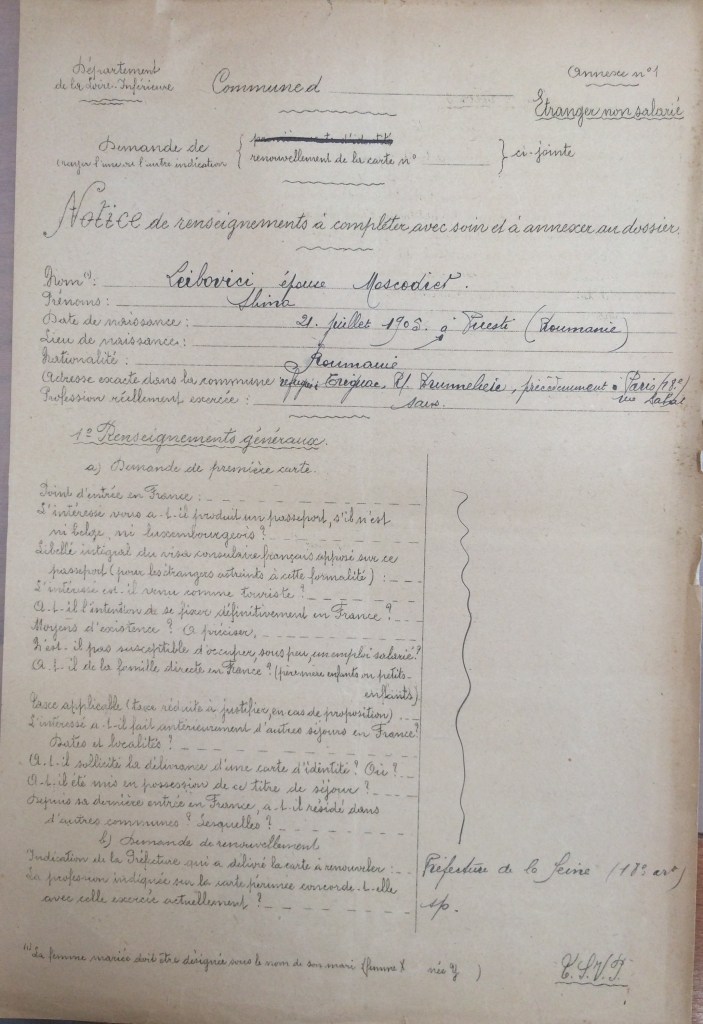 Département
de la Loire-Inférieure
Commune d
Annexe n°1
Etranger non salarié
Demande de
(rayer l'une ou l'autre indication
{ première carte d'identité
renouvellement de la carte n° } ci-jointe
Notice de renseignements à compléter avec soin et à annexer au dossier.
Nom(1): Leibovici épouse Moscodici
Prénoms:
Date de naissance: 21 juillet 1905 à (Roumanie)
Lieu de naissance:
Nationalité: Roumanie
Adresse exacte dans la commune réfugiée précédemment à Paris (18e)
Profession réellement exercée: sans
1° Renseignements généraux.
a) Demande de première carte.
Point d'entrée en France:
L'intéressé vous a-t-il produit un passeport, s'il n'est
ni belge, ni luxembourgeois?
Libellé intégral du visa consulaire français apposé sur ce
passeport (pour les étrangers astreints à cette formalité):
L'intéressé est-il venu comme touriste?
A-t-il l'intention de se fixer définitivement en France?
Moyens d'existence? A préciser,
N'est-il pas susceptible d'occuper, sous peu, un emploi salarié?
A-t-il de la famille directe en France? (père mère enfants ou petits-
enfants)
Taxe applicable (taxe réduite à justifier, en cas de proposition)
L'intéressé a-t-il fait antérieurement d'autres séjours en France?
Dates et localités?
A-t-il sollicité la délivrance d'une carte d'identité? Où?
A-t-il été mis en possession de ce titre de séjour?
Depuis sa dernière entrée en France, a-t-il résidé dans
d'autres communes? Lesquelles?
b) Demande de renouvellement
Indication de la Préfecture qui a délivré la carte à renouveler: Préfecture de la Seine (18e arrt)
La profession indiquée sur la carte périmée concorde-t-elle
avec celle exercée actuellement? sp.
(1) La femme mariée doit être désignée sous le nom de son mari (femme X née Y )
T.S.V.P.